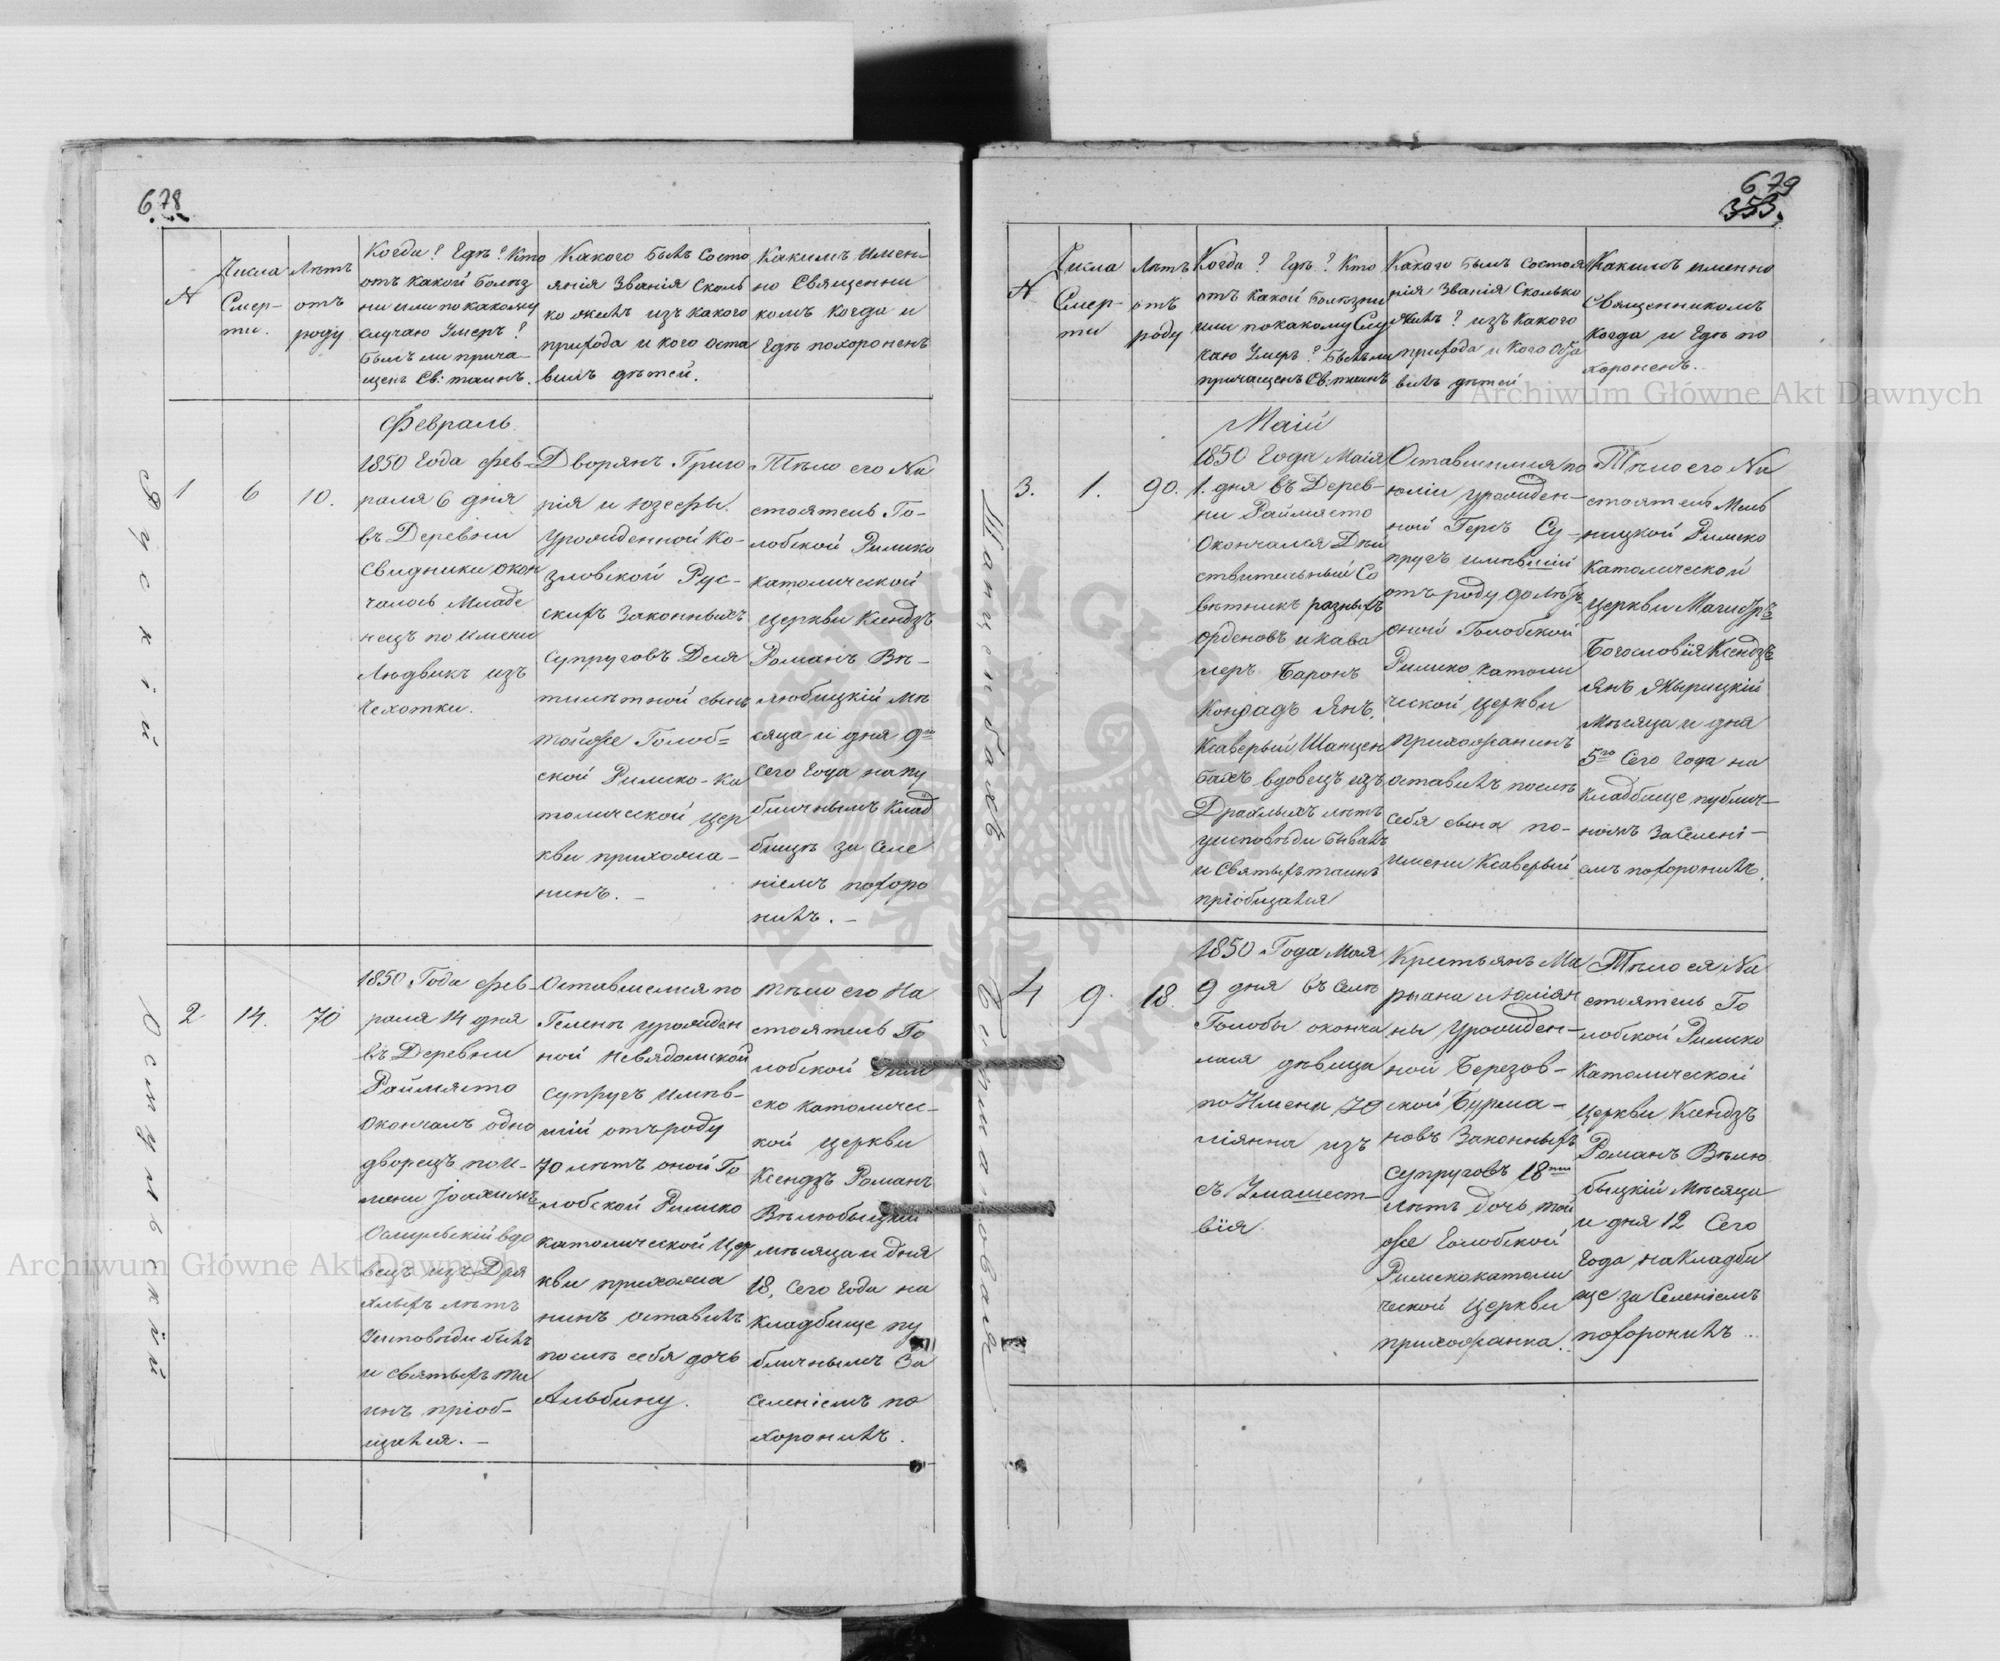 678
№
Числа
Смер-
ти.
Лѣтъ
отъ
роду
Когда? Гдѣ? Кто
отъ какой Болѣз
ни или по какому
случаю Умеръ?
былъ ли прича-
щенъ Св: таинъ.
Какого былъ Состо
янія Званія Сколь
ко жилъ изъ какого
прихода и кого оста
вилъ дѣтей.
Какимъ имен-
но Священни
комъ когда и
Гдѣ похороненъ
Февраль
Рускій
1
6
10.
1850 Года фев-
раля 6 дня
въ Деревни
Свидники окон
чалсь Младе
нецъ по имени
Людвикъ изъ
Чехотки.
Дворянъ Григо
рія и Юзефы
Урожденной Ко-
зловской Рус-
скихъ Законныхъ
Супруговъ Деся
тилѣтной сынъ
тойже Голоб=
ской Римско-Ка
толической цер
кви прихожа-
нинъ.-
Тѣло его На
стоятель Го-
лобской Римско
католической
церкви Ксендзъ
Романъ Вѣ-
любицкій мѣ
сяца и дня 9го
сего Года на пу
бличнымъ Клад
бищѣ за Селе
ніемъ похоро
нилъ.-
Осмульскій
2
14.
70
1850 Года фев-
раля 14 дня
въ Деревни
Раймясто
Окончалъ одно
дворецъ по и-
мени Іоахимъ
Осмульскій вдо
вецъ изъ Дря
хлыхъ лѣтъ
Уисповѣди былъ
и святыхъ та
инъ пріоб-
щался.-
Оставшемся по
Геленѣ урожден
ной Невядомской
супругъ имѣв-
шій отъ роду
70 лѣтъ оной Го
лобской Римско
католической Цер
кви прихожа
нинъ оставилъ
послѣ себя дочь
Альбину.
тѣло его На
стоятель Го
лобской Рим
ско католичес-
кой церкви
Ксендзъ Романъ
Вѣлюбыцкій
мѣсяца и дня
18, Сего Года на
кладбище пу
бличнымъ За
селеніемъ по
хоронилъ.
679
353.
№
Числа
Смер-
ти
Лѣтъ
отъ
роду
Когда? Гдѣ? Кто
отъ какой болѣзни
или по какому Слу
чаю Умеръ? былъ ли
причащенъ Св: таинъ
Какого былъ состоя
нія Званія Сколько
Жилъ? изъ какого
прихода и кого оста
вилъ дѣтей
Какимъ именно
Священникомъ
Когда и Гдѣ по
хороненъ.
Маій
Шанценбахъ
3.
1.
90.
1850 Года Маія
1. дня въ Дерев-
ни Раймясто
Окончался Дѣй
ствительный Со
вѣтникъ разныхъ
орденовъ и кава
леръ Баронъ
Конрадъ Янъ,
Ксаверый Шанцен
бахъ вдовецъ изъ
Драхлыхъ лѣтъ
уисповѣди бывалъ
и Святыхъ таинъ
пріобщался
Оставшимся по
Юліи урожден-
ной Герпъ Су-
пругъ имѣвшій
отъ роду 90 лѣтъ
оной Голобской
Римско католи
ческой церкви
прихожанинъ
оставилъ послѣ
себя сына по-
имени Ксаверый
Тѣло его На
стоятель Мель
ницкой Римско
католической
церкви Магистръ
Богословія Ксендзъ
Янъ Жырицкій
Мѣсяца и дня
5го Сего Года на
кладбище публич-
номъ За Селені-
емъ похоронилъ.
Бурмановая
4
9.
18.
1850 Года Мая
9 дня въ Селѣ
Голобы оконча
лася дѣвица
по Имени Ю
ліянна изъ
съ Умашест-
вія
Крестьянъ Ма
рыана и Юліян
ны Урожден-
ной Березов-
ской Бурма-
новъ Законныхъ
супруговъ 18ти
лѣтъ дочь той
же Голобской
Римскокатоли
ческой церкви
прихожанка.
Тѣло ея На
стоятель Го
лобской Римско
католической
церкви Ксендзъ
Романъ Вѣлю
быцкій Мѣсяца
и дня 12 Сего
Года на Кладби
ще за Селеніемъ
похоронилъ
Archiwum Główne Akt Dawnych
Archiwum Główne Akt Dawnych